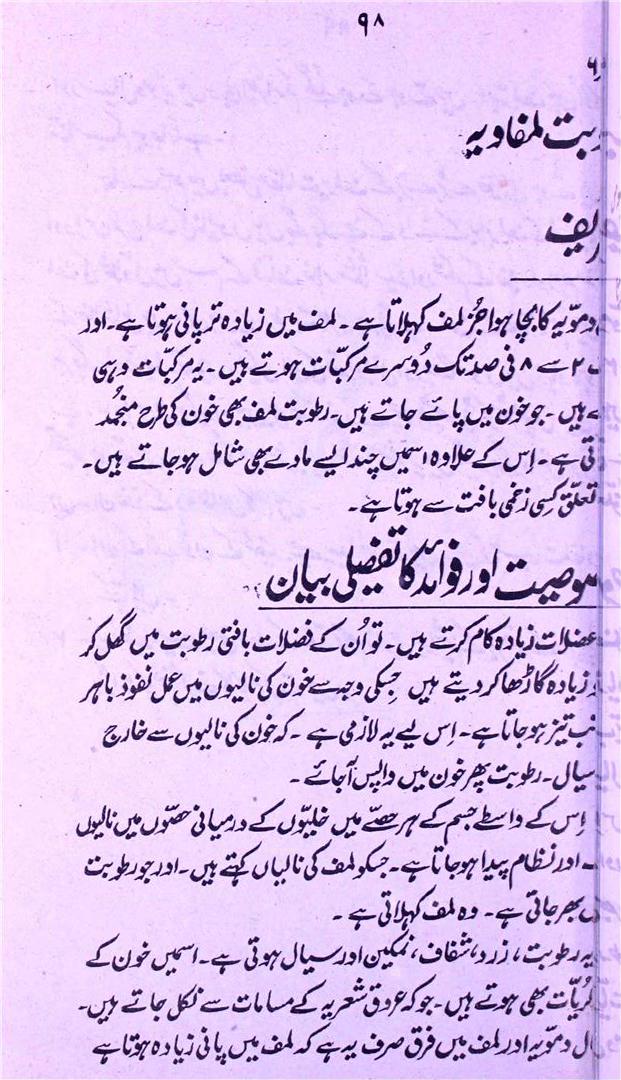 ۹۸
لمفاویہ
دمویّہ کا بچا ہوا جُز لمف کہلاتا ہے ۔ لمف میں زیادہ تر پانی ہوتا ہے ۔ اور
۲ سے ۸ فی صد تک دُوسرے مرکبّات ہوتے ہیں ۔ یہ مرکبّات وہی
ہیں ۔ جو خون میں پائے جاتے ہیں ۔ رطوبت لمف بھی خون کی طرح منجُمد
ہے ۔ اِس کے علاوہ اسمیں چند ایسے مادے بھی شامل ہو جاتے ہیں ۔
تعلّق کِسی زخمی بافت سے ہوتا ہے ۔
اور فوائد کا تفصیلی بیان
عضلات زیادہ کام کرتے ہیں ۔ تو اُن کے فضلات بافتی رطوبت میں گھل کر
زیادہ گاڑھا کر دیتے ہیں جِسکی وجہ سے خون کی نالیوں میں عمل نفوذ باہر
تیز ہو جاتا ہے ۔ اِس لیے یہ لازمی ہے ۔ کہ خون کی نالیوں سے خارج
سیال ۔ رطوبت پھر خون میں واپس آ جائے ۔
اِس کے واسطے جسم کے ہر حصّے میں خلیوّں کے درمیانی حصّوں میں نالیوں
اور نظام پیدا ہو جاتا ہے ۔ جسکو لمف کی نالیاں کہتے ہیں ۔ اور جو رطوبت
بھر جاتی ہے ۔ وہ لمف کہلاتی ہے ۔
یہ رطوبت ، زرد ، شفاف ، نمکین اور سیال ہوتی ہے ۔ اسمیں خون کے
بھی ہوتے ہیں ۔ جو کہ عروق شعریہ کے مسامات سے نکل جاتے ہیں ۔
دمویّہ اور لمف میں فرق صرف یہ ہے کہ لمف میں پانی زیادہ ہوتا ہے